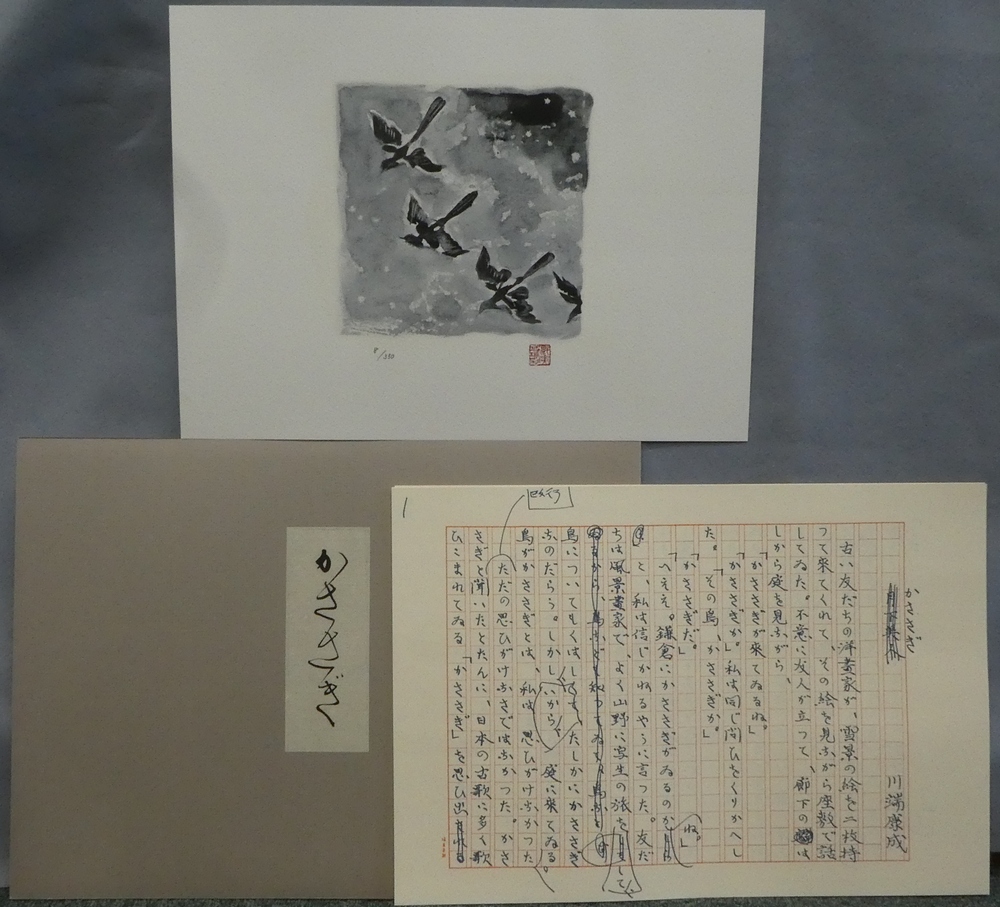 8/380
かささぎ
1
改行
かささぎ
川端康成
古い友だちの洋畫家が、雪景の絵を二枚持
つて来てくれて、その絵を見ながら座敷で話
してゐた。不意に友人が立つて、廊下の は
しから庭を見ながら、
「かささぎが来てゐるね。」
「かささぎか。」私は同じ問ひをくりかへし
た。「その鳥、かささぎか。」
「かささぎだ。」
「へええ。鎌倉にかささぎがゐるのかね。」
と、私は信じかねるやうに言つた。友だ
ちは風景畫家で、よく山野に写生の旅をして、
鳥についてもくはしい。たしかにかささぎ
なのだらう。しかし いから、 庭に来てゐる。
鳥がかささぎとは、私は 思ひがけなかつた
ただの思ひがけなさではなかつた。かさ
さぎと聞いたとたんに、日本の古歌に多く歌
ひこまれてゐる「かささぎ」を思ひ出